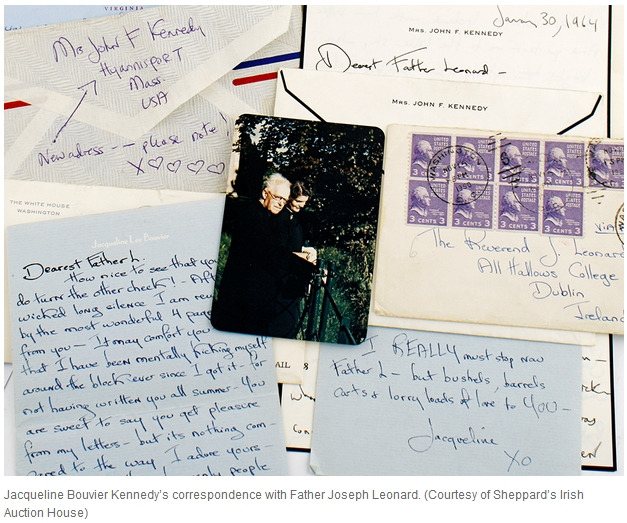 VIRGINIA
Mrs John F Kennedy
Hyannisport
Mass.
USA
New adress — please note!
X♡♡♡♡
THE WHITE HOUSE
WASHINGTON
January 30, 1964
MRS. JOHN F. KENNEDY
Dearest Father Leonard –
MRS. JOHN F. KENNEDY
UNITED STATES POSTAGE
3 CENTS 3
VIA
The Reverend J. Leonard
All Hallows College
Dublin
Ireland
Jacqueline Lee Bouvier
Dearest Father L.
How nice to see that you
do turn the other cheek! – Aft
wicked long silence I am re
by the most wonderful 4 page
from you – It may comfort you
that I have been mentally kicking myself
around the block ever since I got it – for
not having written you all summer – You
are sweet to say you get pleasure
from my letters – but its nothing com-
pared to the way I adore yours –
only people
AIL
I REALLY must stop now
Father L – but bushels, barrels
carts & lorry loads of love to YOU –
Jacqueline
XO
Jacqueline Bouvier Kennedy's correspondence with Father Joseph Leonard. (Courtesy of Sheppard's Irish
Auction House)